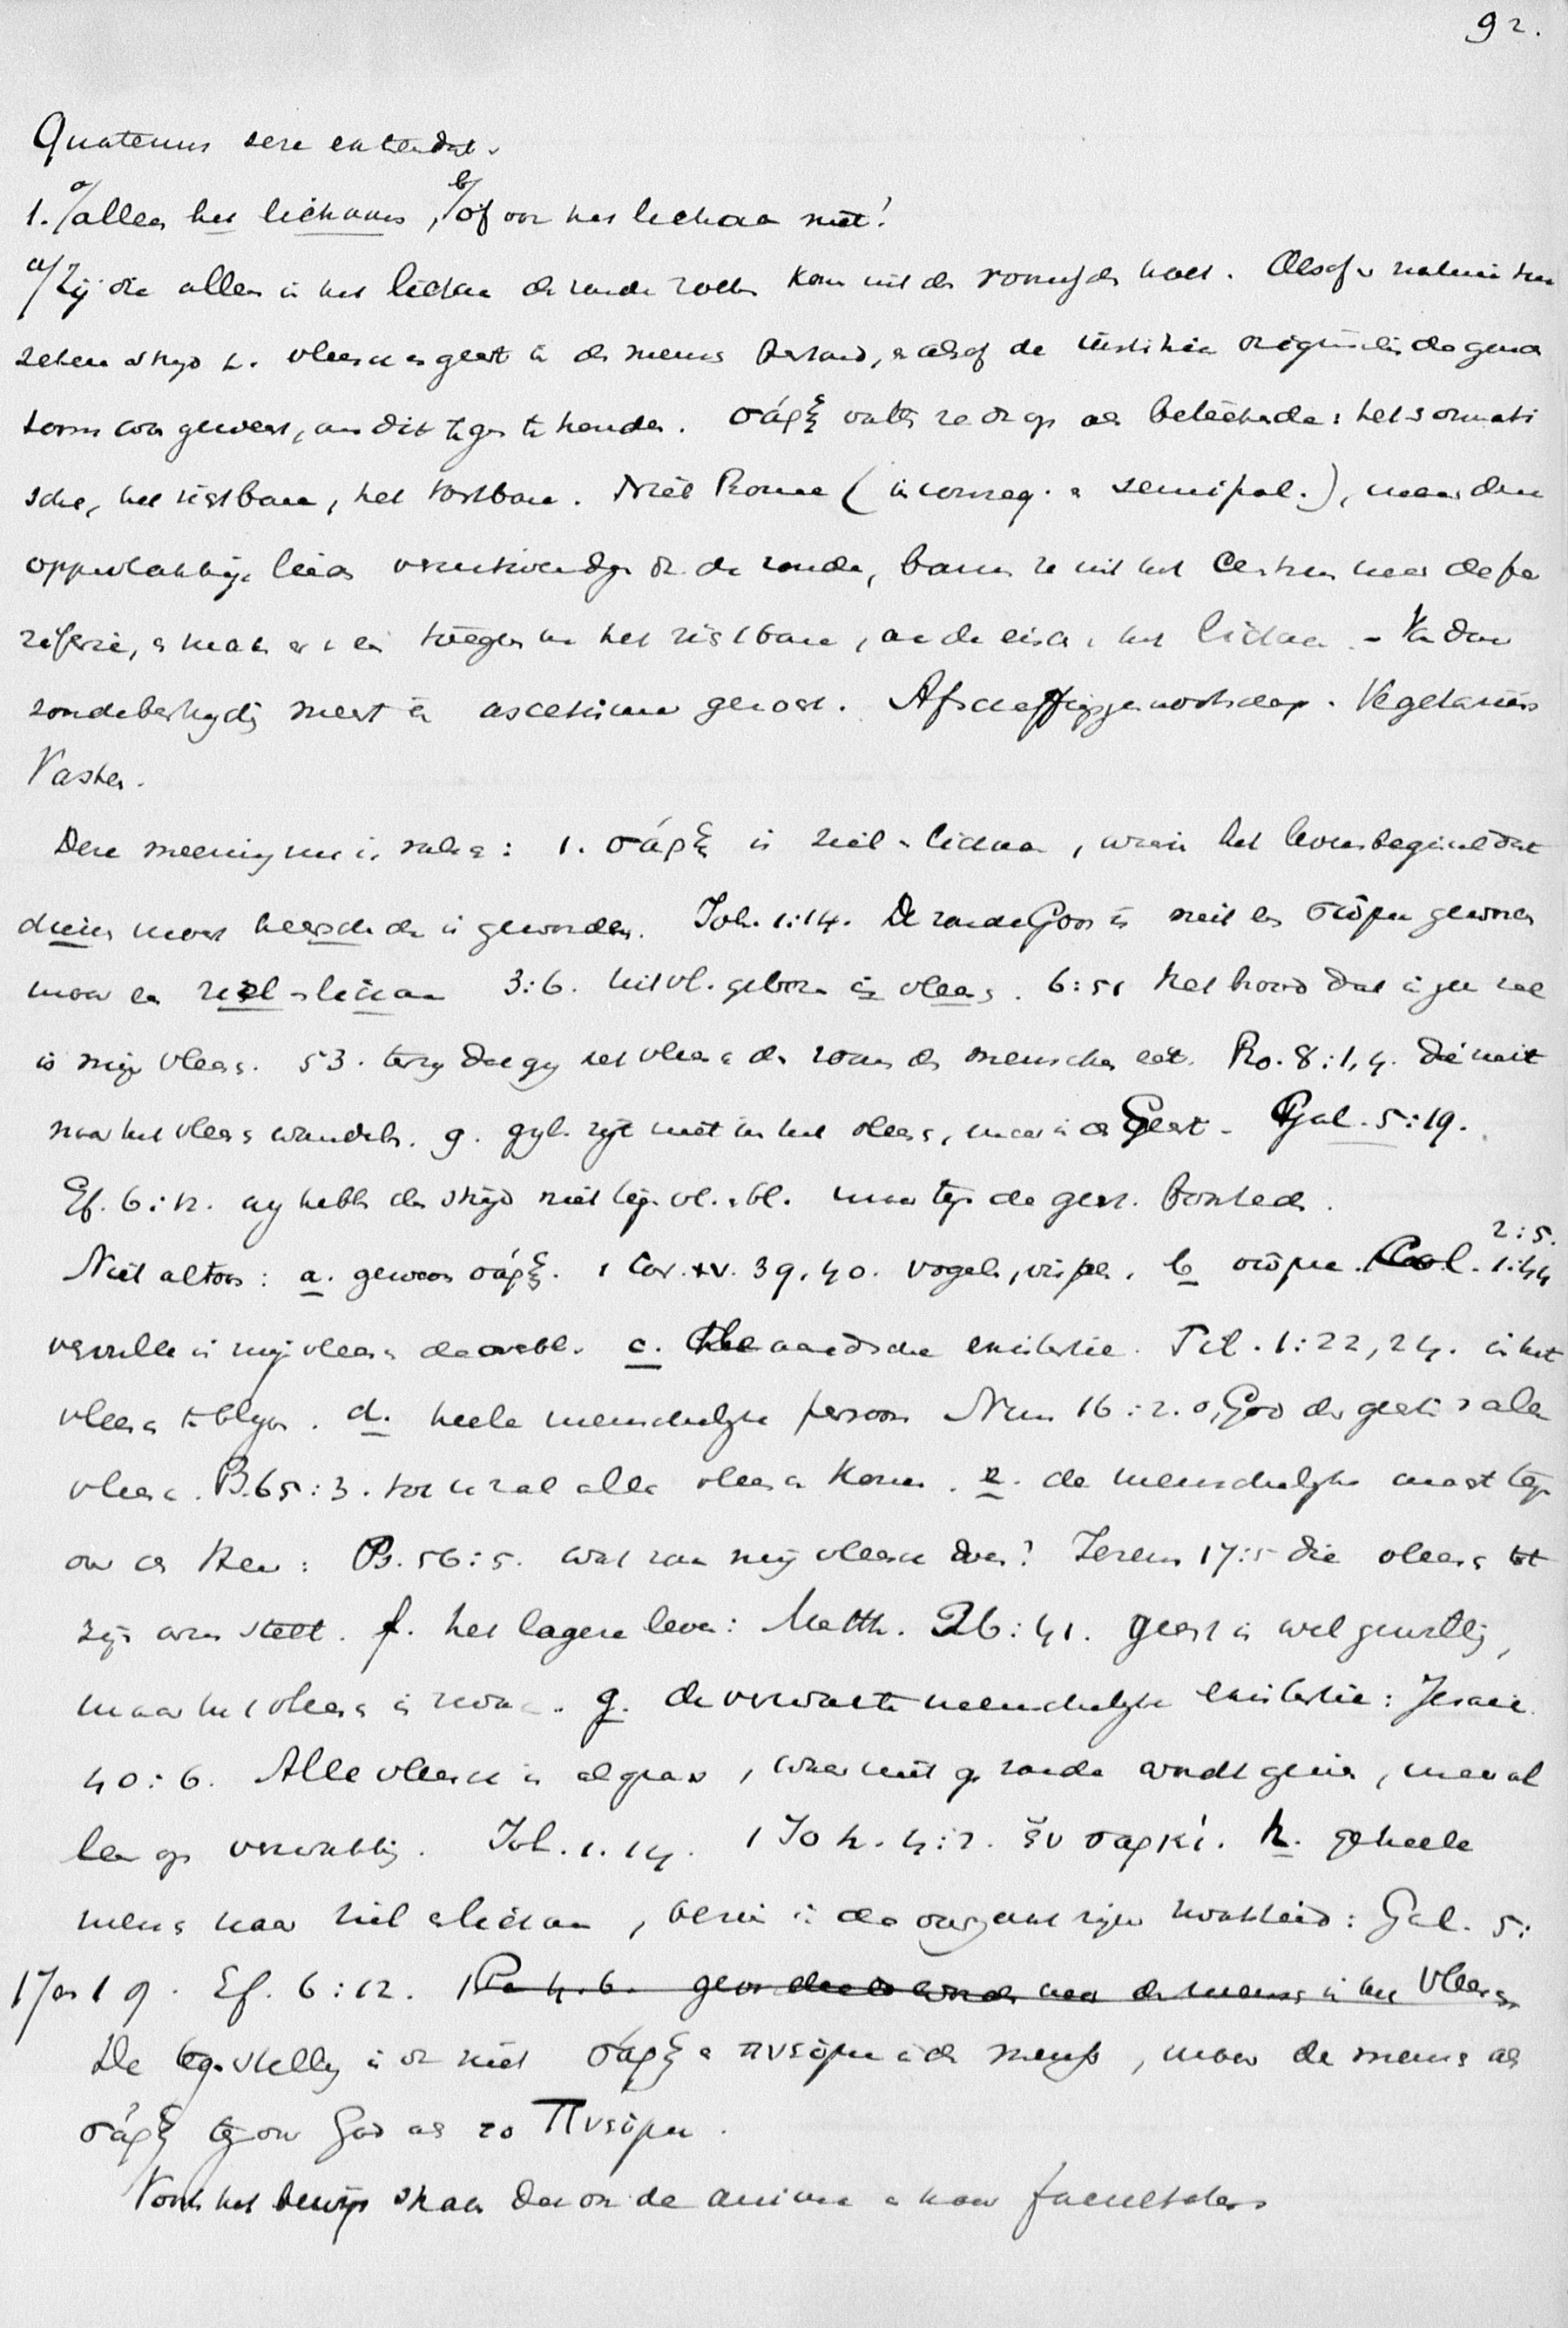 92.
Quatenus sese extendat.
1. a/ alleen het lichaam, b/ óf ook het lichaam niet!
a/ Zij die alleen in het lichaam de zonde zoeken kom uit de roomsche hoek. Alsof v. nature een
zekere strijd t. vleesch en geest in de mensch bestond, en alsof de iustitia originalis de gena
toom was geweest, om dit tegen te houden. σάρξ vatten ze dr op als beteekende: het somati
sche, het zichtbare, het tastbare. Niet Rome ( in conseq. en semipel.), maar
oppervlakkige de zonde, bannen ze uit het Centrum naar de pe
riferie, en maken er een toegev. aan het zichtbare, aan de het lichaam. - Van daar
zondebestrijding meest in ascetisme gezocht. Afschaffingsgenootschap. Vegetariërs
Vasten.
Deze meening nu is valsch: 1. σάρξ is ziel en lichaam, waarin het levensbeginsel dat
dienen moest heerschende is geworden. Joh. 1:14. De zoon Gods is niet een σῶμα geworden
maar een ziel en lichaam 3:6. uit vl. geboren is vlees. 6:51 het brood dat ik gev. zal
is mijn vlees. 53. tenzij dat gij het vlees des zoons des menschen eet. Ro. 8:1,4. die niet
naar het vlees wandelen. 9. gijl. zijt niet in het vlees, maar in de Geest - Gal. 5:19.
Ef. 6:12. wij hebben de strijd niet tegen vl. en bl. maar tegen de geest. boosheden.
Niet altoos: a. gewoon σάρξ. 1 Cor. XV. 39, 40. vogels, visschen. b σῶμα. Col. 1:24 2:5.
vervulle in mijn vleesch de overbl. c. aardsche existentie. Fil. 1:22, 24. in het
vleesch te blijven. d. heele menschelijke persoon Num 16:22. o, God der geesten van alle
vleesch. Ps. 65:3. tot u zal alle vleesch komen. e. de menschelijke macht tegen
over de Heer: Ps. 56:5. wat zou mij vleesch doen? Jerem 17:5 die vleesch tot
zijn arm stelt. f. het lagere leven: Matth. 26:41. geest is wel gewillig,
maar het vleesch is zwak. g. de verzwakte menschelijke existentie: Jesaie
40:6. Alle vleesch is als gras, waar niet op zonde wordt gewez., maar al
leen op verzwakking. Joh. 1.14. 1 Joh. 4:2. ἐν σαρκί. h. geheele
mensch naar ziel en lichaam, bezien in de zijner : Gal. 5:
17 en 19. Ef. 6:12. 1 Pe 4.6. geoordeeld worden naar de mensch in het vleesch
De tegenstelling is dr niet σάρξ en πνεῦμα in de mensch, maar de mensch als
σάρξ tegenover God als το Πνεῦμα.
Voorts het bewijs staan dat ook de anima en haar facultates